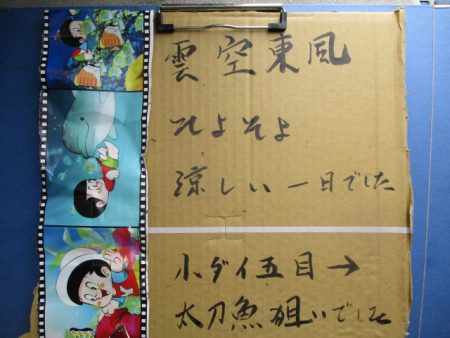 雲空東風
そよそよ
涼しい一日でした
小ダイ五目→
太刀魚狙いでした